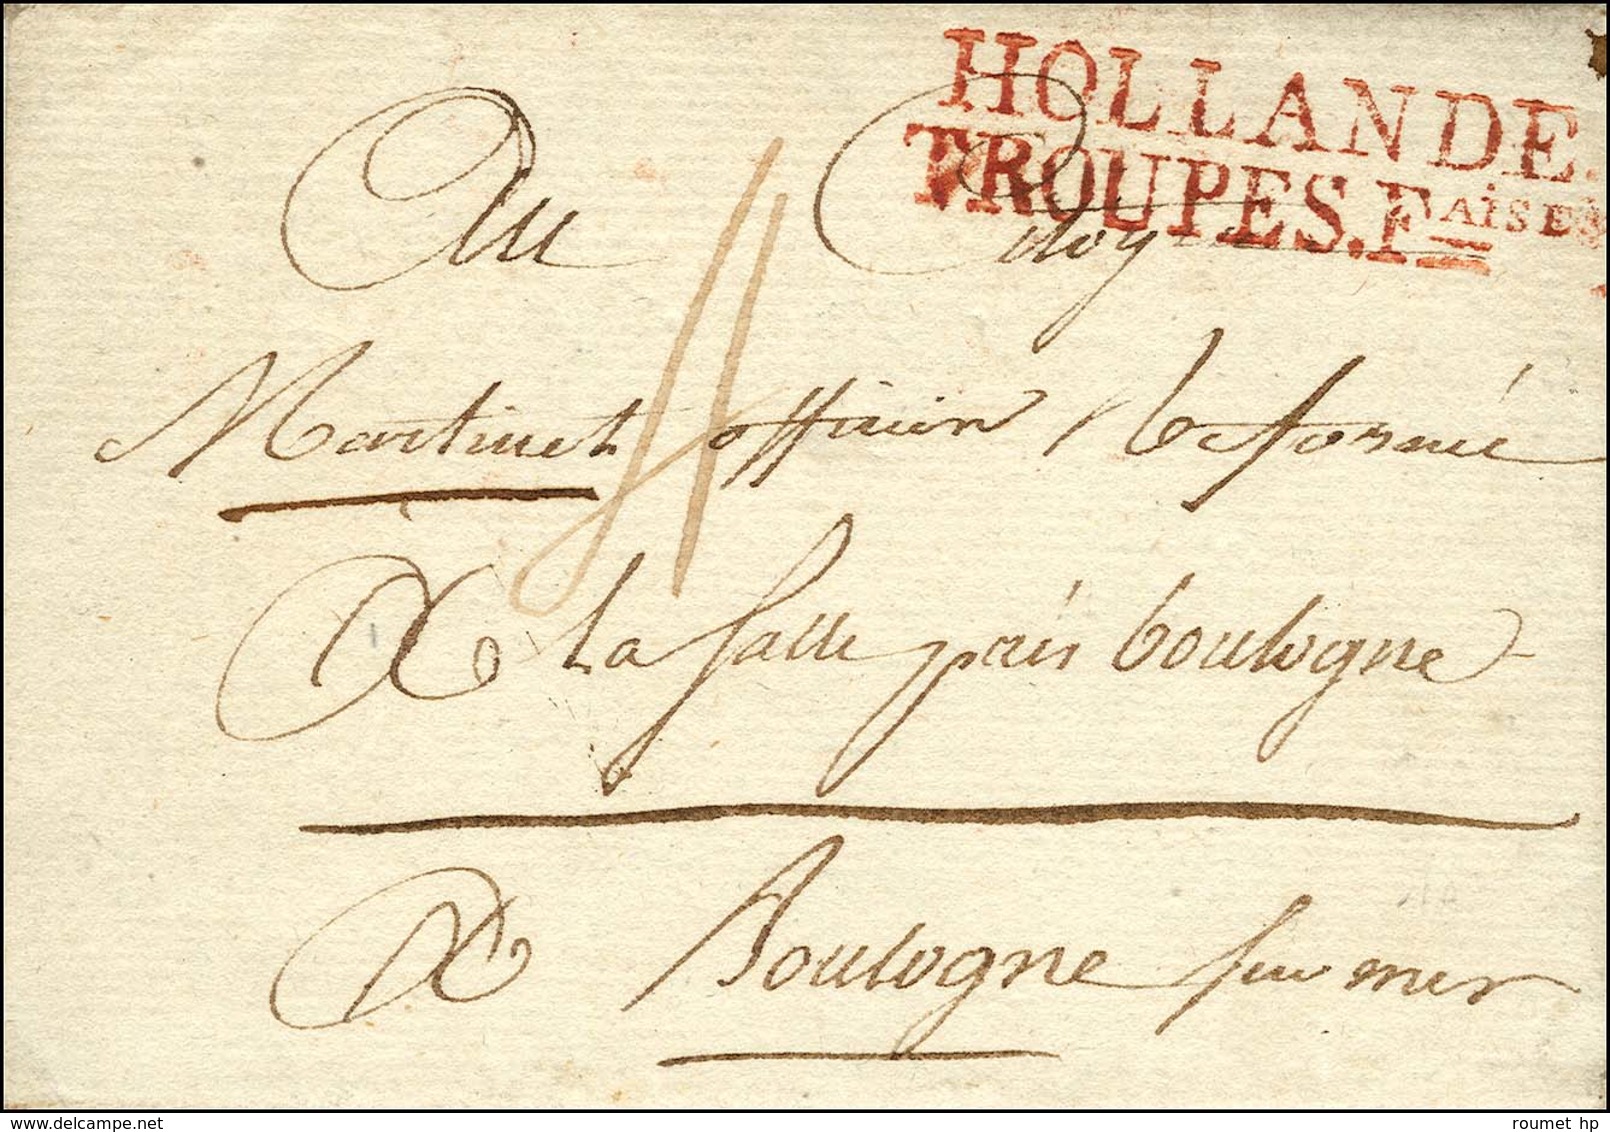 HOLLANDE.
TROUPES.Faises
Au Citoyen
Martinet officier Reformé
A La Salle près boulogne
A Boulogne sur mer
delcampe.net
roumet hp